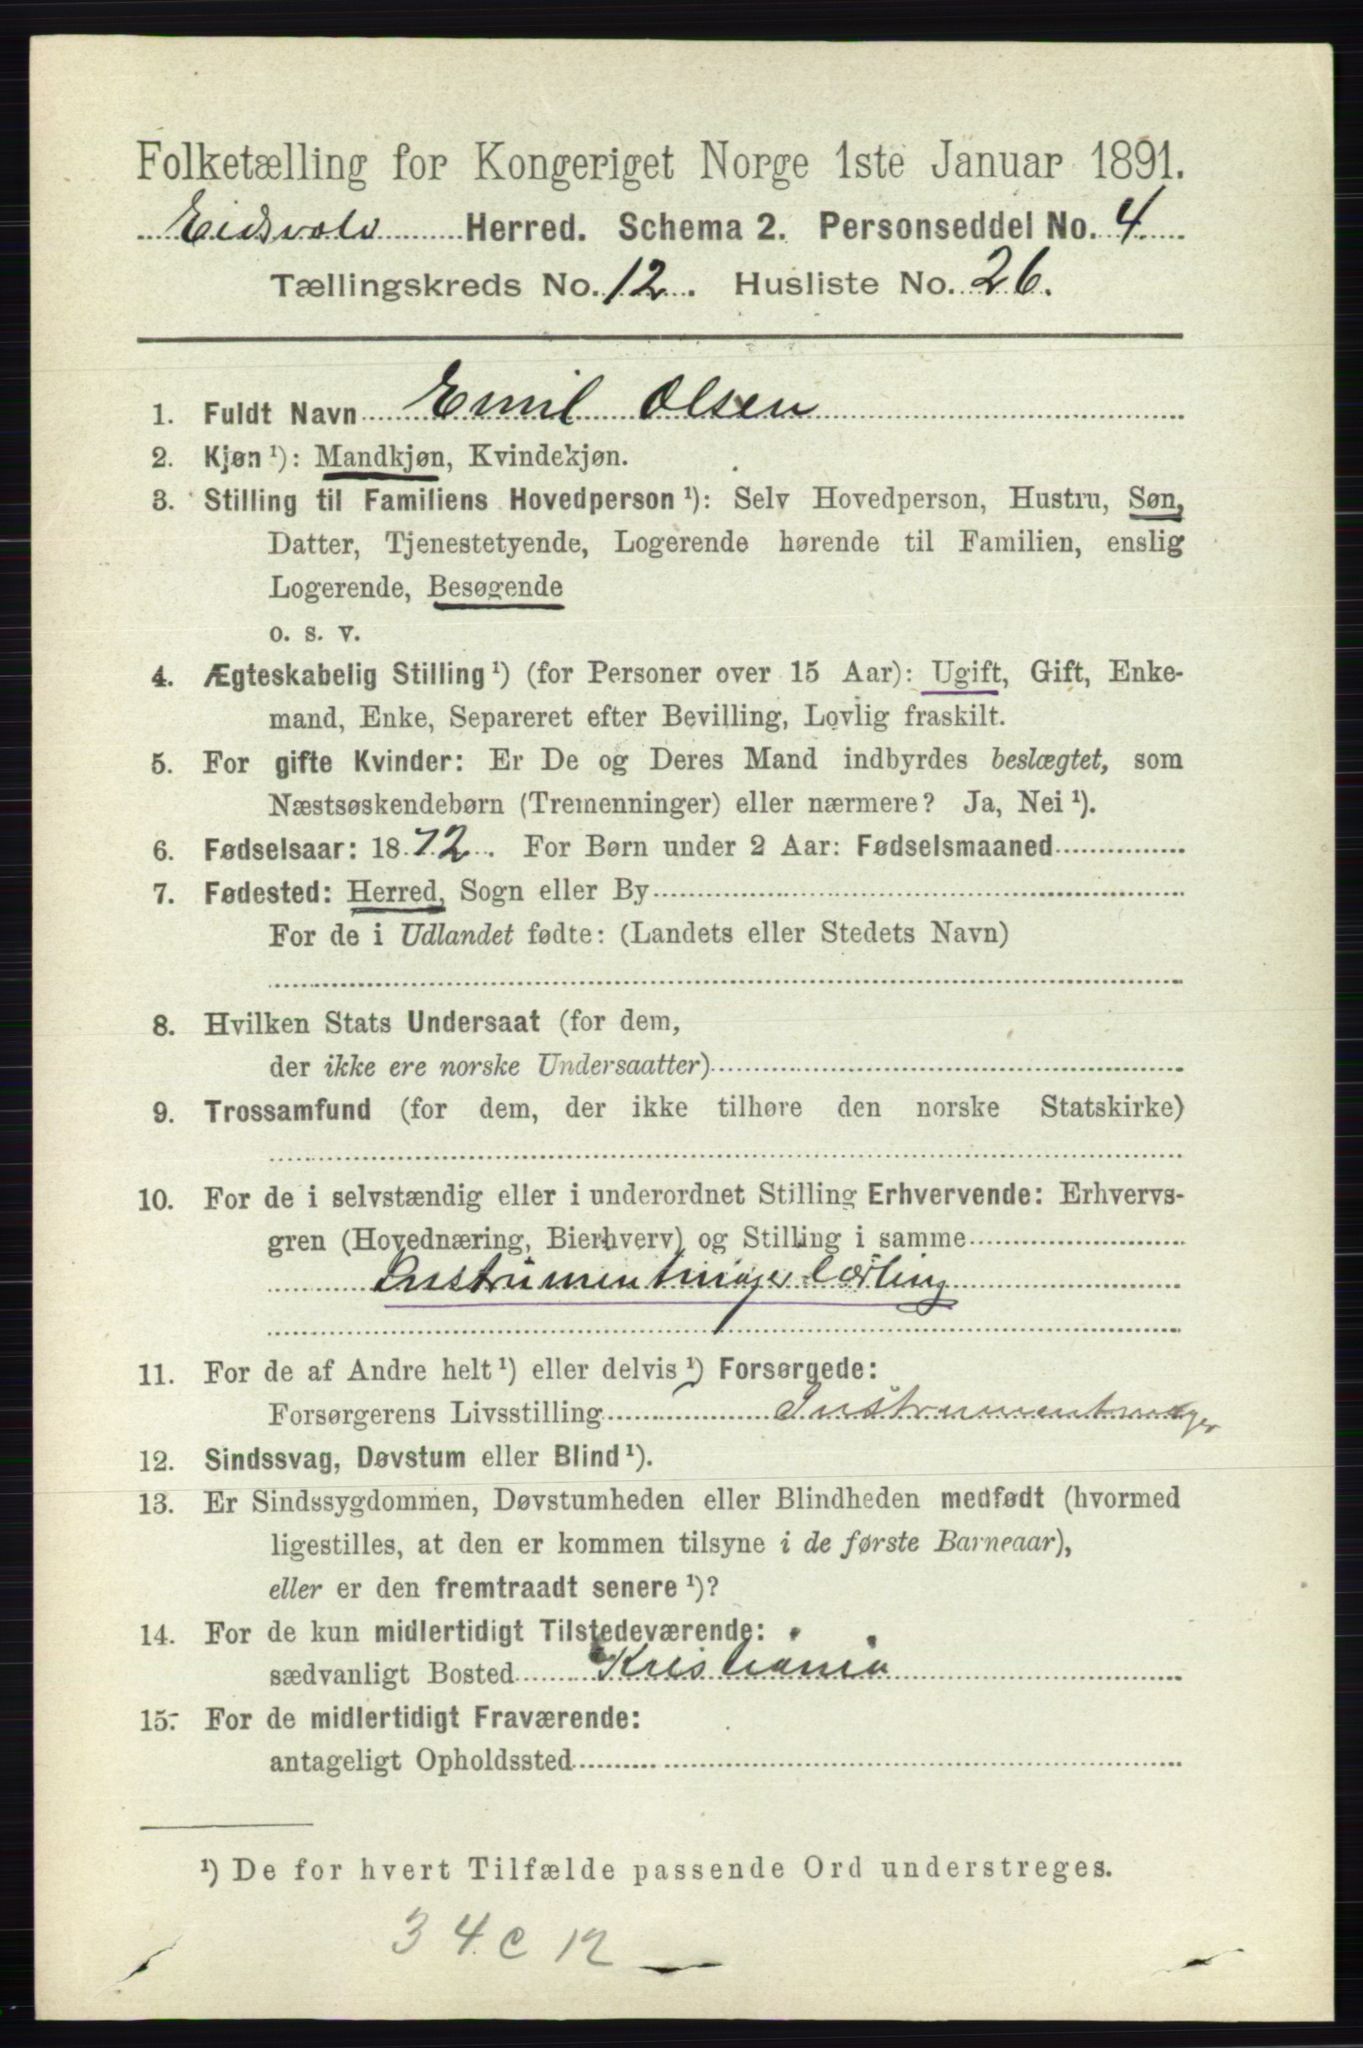 Folketælling for Kongeriget Norge 1ste Januar 1891.
Eidsvold Herred. Schema 2. Personseddel No. 4
Tællingskreds No. 12. Husliste No. 26.
1. Fuldt Navn Emil Olsen
2. Kjøn ¹): Mandkjøn, Kvindekjøn.
3. Stilling til Familiens Hovedperson ¹): Selv Hovedperson, Hustru, Søn,
Datter, Tjenestetyende, Logerende hørende til Familien, enslig
Logerende, Besøgende
o. s. v.
4. Ægteskabelig Stilling ¹) (for Personer over 15 Aar): Ugift, Gift, Enke-
mand, Enke, Separeret efter Bevilling, Lovlig fraskilt.
5. For gifte Kvinder: Er De og Deres Mand indbyrdes beslægtet, som
Næstsøskendebørn (Tremenninger) eller nærmere? Ja, Nei ¹).
6. Fødselsaar: 1872. For Børn under 2 Aar: Fødselsmaaned
7. Fødested: Herred, Sogn eller By
For de i Udlandet fødte: (Landets eller Stedets Navn)
8. Hvilken Stats Undersaat (for dem,
der ikke ere norske Undersaatter)
9. Trossamfund (for dem, der ikke tilhøre den norske Statskirke)
10. For de i selvstændig eller i underordnet Stilling Erhvervende: Erhvervs-
gren (Hovednæring, Bierhverv) og Stilling i samme
Instrumentmager lærling
11. For de af Andre helt ¹) eller delvis ¹) Forsørgede:
Forsørgerens Livsstilling Instrumentmager
12. Sindssvag, Døvstum eller Blind ¹).
13. Er Sindssygdommen, Døvstumheden eller Blindheden medfødt (hvormed
ligestilles, at den er kommen tilsyne i de første Barneaar),
eller er den fremtraadt senere ¹)?
14. For de kun midlertidigt Tilstedeværende:
sædvanligt Bosted Kristiania
15. For de midlertidigt Fraværende:
antageligt Opholdssted
¹) De for hvert Tilfælde passende Ord understreges.
34 c 12